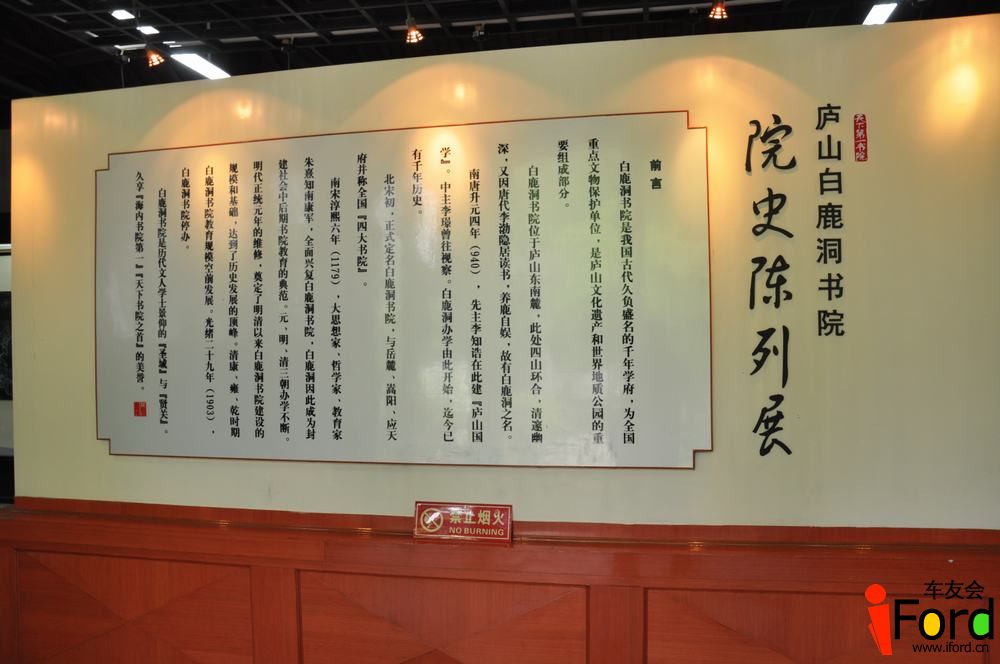 天下第一书院
庐山白鹿洞书院
院史陈列展
前言
白鹿洞书院是我国古代久负盛名的千年学府，为全国
重点文物保护单位，是庐山文化遗产和世界地质公园的重
要组成部分。
白鹿洞书院位于庐山东南麓，此处四山环合，清邃幽
深，又因唐代李渤隐居读书，养鹿自娱，故有白鹿洞之名。
南唐升元四年（940），先主李知诰在此建『庐山国
学』。中主李璟曾往视察。白鹿洞办学由此开始，迄今已
有千年历史。
北宋初，正式定名白鹿洞书院，与岳麓、嵩阳、应天
府并称全国『四大书院』。
南宋淳熙六年（1179），大思想家、哲学家、教育家
朱熹知南康军，全面兴复白鹿洞书院，白鹿洞因此成为封
建社会中后期书院教育的典范。元、明、清三朝办学不断。
明代正统元年的维修，奠定了明清以来白鹿洞书院建设的
规模和基础，达到了历史发展的顶峰。清康、雍、乾时期
白鹿洞书院教育规模空前发展。光绪二十九年（1903），
白鹿洞书院停办。
白鹿洞书院是历代文人学士景仰的『圣域』与『贤关』。
久享『海内书院第一』『天下书院之首』的美誉。
禁止烟火
NO BURNING
车友会
iFord
www.iford.cn